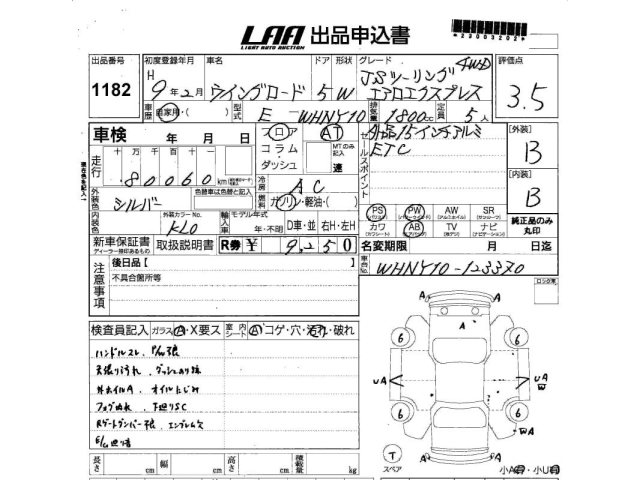 LAA 出品申込書
LIGHT AUTO AUCTION
*22003202*
出品番号 1182
初度登録年月 車名 ドア 形状 グレード 評価点
H 9年2月 ウイングロード 5 W JSツーリング 4WD
エアロエクスプレス 3.5
車歴 自家用・( ) 型式 E - WHNY10 排気量 1800cc 定員 5人
車検 年 月 日
フロア AT
コラム MTのみ記入
ダッシュ 速
セールスポイント 外品15インチアルミ
ETC
[外装] B
[内装] B
走行 十万 万 千 百 十
80060 km
冷房 AC
外装色 シルバー
色替車は色替と記入
燃料 ガソリン・軽油・( )
内装色
外装カラーNo. KL0
輸入車 モデル年式 年・不明 D車・並 右H・左H
PS PW AW SR
(パワステ) (パワーウィンド) (アルミホイル) (サンルーフ)
カワ AB TV ナビ
(カワシート) (エアバッグ) (純テレ) (ナビゲーション)
純正品のみ丸印
新車保証書 取扱説明書 R券 ¥ 9,250
ディーラー捺印あるもの
名変期限 月 日迄
後日品【 】
車台No. WHNY10-123370
注意事項 不具合箇所等
検査員記入 ガラス A・X要ス 室内シート A コゲ・穴・汚れ・破れ
ハンドルスレ
天張り汚れ
外ホイルA オイルにじみ
フォグ 下廻りSC
エンブレム欠
長さ cm 幅 cm 高さ cm 積載量 kg
A
A
6 6
UA A UA W
6 6
WA
A
T
スペア
小A 小U